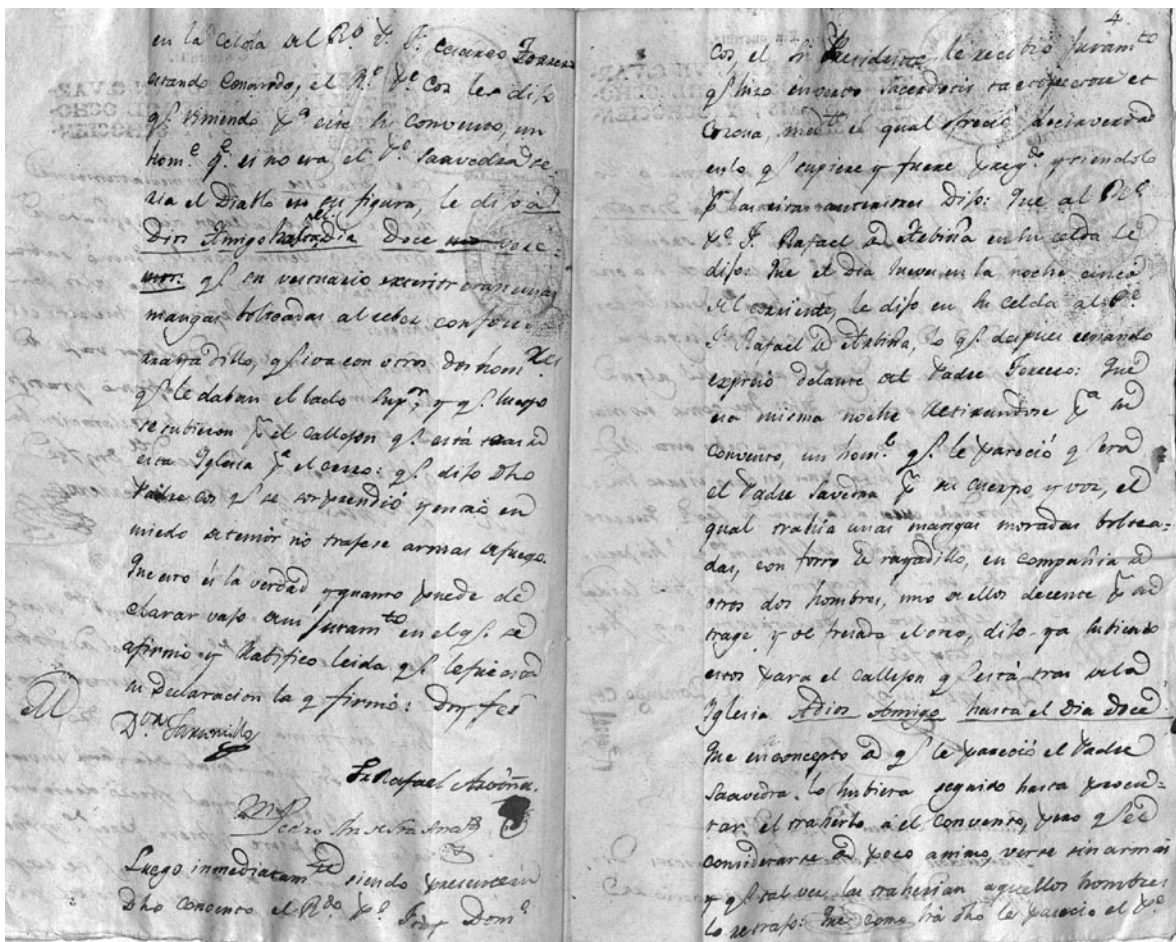 en la Celda del R.º P. F. Cesareo Forrer
estando Cenando, el R.º P.e Cos les dijo
q.e viniendo p.a este su Convento, un
hom.e q.e si no era el P.e Saavedra se
ria el Diablo en su figura, le dijo á
Dios Amigo hasta el Dia Doce
q.e su vestuario exterior eran unas
mangas bolteadas al rebes con forro
rayadillo, q.e iva con otros dos hom.res
q.e le daban el lado Sup.r, y q.e luego
se subieron p.r el callejon q.e está tras de
esta Iglesia p.a el cerro: q.e dijo dho
Padre Cos q.e se sorprendió y entró en
miedo de temor no trajese armas de fuego.
Que esto és la verdad y quanto puede de
clarar vajo de su Juram.to en el q.e se
afirmó y Ratifico leida q.e le fué esta
su Declaracion la q firmó: Doy feé
Fr Rafael
Pedro
Luego inmediatam.te siendo presente en
Dho Convento el R.do P.e Fray Dom.o
4.
Cos, el Sr Presidente, le recibió Juram.to
q.e hizo in verbo Sacerdotis tacto pectore et
Corona, med.te el qual ofreció decir verdad
en lo q.e supiere y fuere preg.do y siendolo
p.r las citas anteriores Dijo: Que al R.º
P.e F. Rafael de en su celda le
dijo: Que el dia Jueves en la noche cinco
del corriente, le dijo en su celda al P.e
F. Rafael de lo q.e despues cenando
expresó delante del Padre Que
esa misma noche retirandose p.a su
Convento, un hom.e q.e le pareció q.e era
el Padre Savedra p.r su cuerpo, y voz, el
qual trahia unas mangas moradas boltea-
das, con forro de rayadillo, en compañia de
otros dos hombres, uno de ellos decente p.r su
trage y de el otro, dijo ya subiendo
estos para el callejon q.e está tras de la
Iglesia Adios Amigo hasta el Dia Doce.
Que en concepto de q.e le pareció el Padre
Saavedra, lo hubiera seguido hasta procu-
rar el traherlo a el Convento, pero q.e el
considerarse de poco animo, verse sin armas
y q.e tal vez las traherian aquellos hombres
lo retrajo: Que como há dho le parecio el P.e